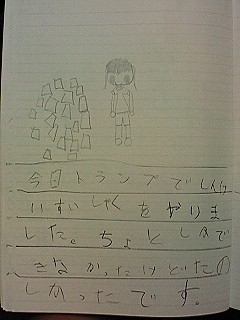 今日トランプでしんけ
いすいしゃくをやりま
した。ちょとしかで
きなかったけどたの
しかったです。